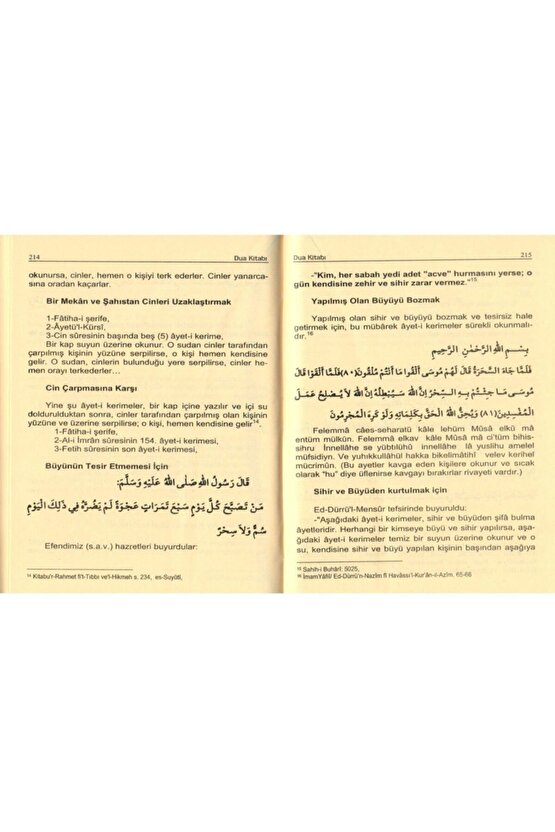 214 Dua Kitabı
okunursa, cinler, hemen o kişiyi terk ederler. Cinler yanarca-
sına oradan kaçarlar.
Bir Mekân ve Şahıstan Cinleri Uzaklaştırmak
1-Fâtiha-i şerife,
2-Âyetü'l-Kürsî,
3-Cin sûresinin başında beş (5) âyet-i kerime,
Bir kap suyun üzerine okunur. O sudan cinler tarafından
çarpılmış kişinin yüzüne serpilirse, o kişi hemen kendisine
gelir. O sudan, cinlerin bulunduğu yere serpilirse, cinler he-
men orayı terkederler…
Cin Çarpmasına Karşı
Yine şu âyet-i kerimeler, bir kap içine yazılır ve içi su
doldurulduktan sonra, cinler tarafından çarpılmış olan kişinin
yüzüne ve üzerine serpilirse; o kişi, hemen kendisine gelir¹⁴.
1-Fâtiha-i şerife,
2-Al-i İmrân sûresinin 154. âyet-i kerimesi,
3-Fetih sûresinin son âyet-i kerimesi,
Büyünün Tesir Etmemesi İçin
قَالَ رَسُولُ اللهِ صَلَّى اللهُ عَلَيْهِ وَسَلَّمَ:
مَنْ تَصَبَّحَ كُلَّ يَوْمٍ سَبْعَ تَمَرَاتٍ عَجْوَةً لَمْ يَضُرَّهُ فِي ذَلِكَ الْيَوْمِ
سُمٌّ وَلَا سِحْرٌ
Efendimiz (s.a.v.) hazretleri buyurdular:
¹⁴ Kitabu'r-Rahmet fi't-Tıbbı ve'l-Hikmeh s. 234, es-Suyûtî,
Dua Kitabı 215
-"Kim, her sabah yedi adet "acve" hurmasını yerse; o
gün kendisine zehir ve sihir zarar vermez."¹⁵
Yapılmış Olan Büyüyü Bozmak
Yapılmış olan sihir ve büyüyü bozmak ve tesirsiz hale
getirmek için, bu mübârek âyet-i kerimeler sürekli okunmalı-
dır.¹⁶
بِسْمِ اللهِ الرَّحْمٰنِ الرَّحِيمِ
فَلَمَّا جَاءَ السَّحَرَةُ قَالَ لَهُمْ مُوسَى أَلْقُوا مَا أَنْتُمْ مُلْقُونَ (٨٠) فَلَمَّا أَلْقَوْا قَالَ
مُوسَى مَا جِئْتُمْ بِهِ السِّحْرُ إِنَّ اللهَ سَيُبْطِلُهُ إِنَّ اللهَ لَا يُصْلِحُ عَمَلَ
الْمُفْسِدِينَ (٨١) وَيُحِقُّ اللهُ الْحَقَّ بِكَلِمَاتِهِ وَلَوْ كَرِهَ الْمُجْرِمُونَ
Felemmâ câes-seharatü kâle lehüm Mûsâ elkû mâ
entüm mülkûn. Felemmâ elkav kâle Mûsâ mâ ci'tüm bihis-
sihru İnnellâhe se yübtılühü innellahe lâ yuslihu amelel
müfsidîyn. Ve yuhikkullâhül hakka bikelimâtihî velev kerihel
mücrimûn. (Bu ayetler kavga eden kişilere okunur ve sıcak
olarak "hu" diye üflenirse kavgayı bırakırlar rivayeti vardır.)
Sihir ve Büyüden kurtulmak için
Ed-Dürrü'l-Mensûr tefsirinde buyuruldu:
-"Aşağıdaki âyet-i kerimeler, sihir ve büyüden şifâ bulma
âyetleridir. Herhangi bir kimseye büyü ve sihir yapılırsa, aşa-
ğıdaki âyet-i kerimeler temiz bir suyun üzerine okunur ve o
su, kendisine sihir ve büyü yapılan kişinin başından aşağıya
¹⁵ Sahih-i Buhârî: 5025,
¹⁶ İmamYâfiî/ Ed-Dürrü'n-Nazîm fî Havâssı'l-Kur'ân-il-Azîm, 65-66